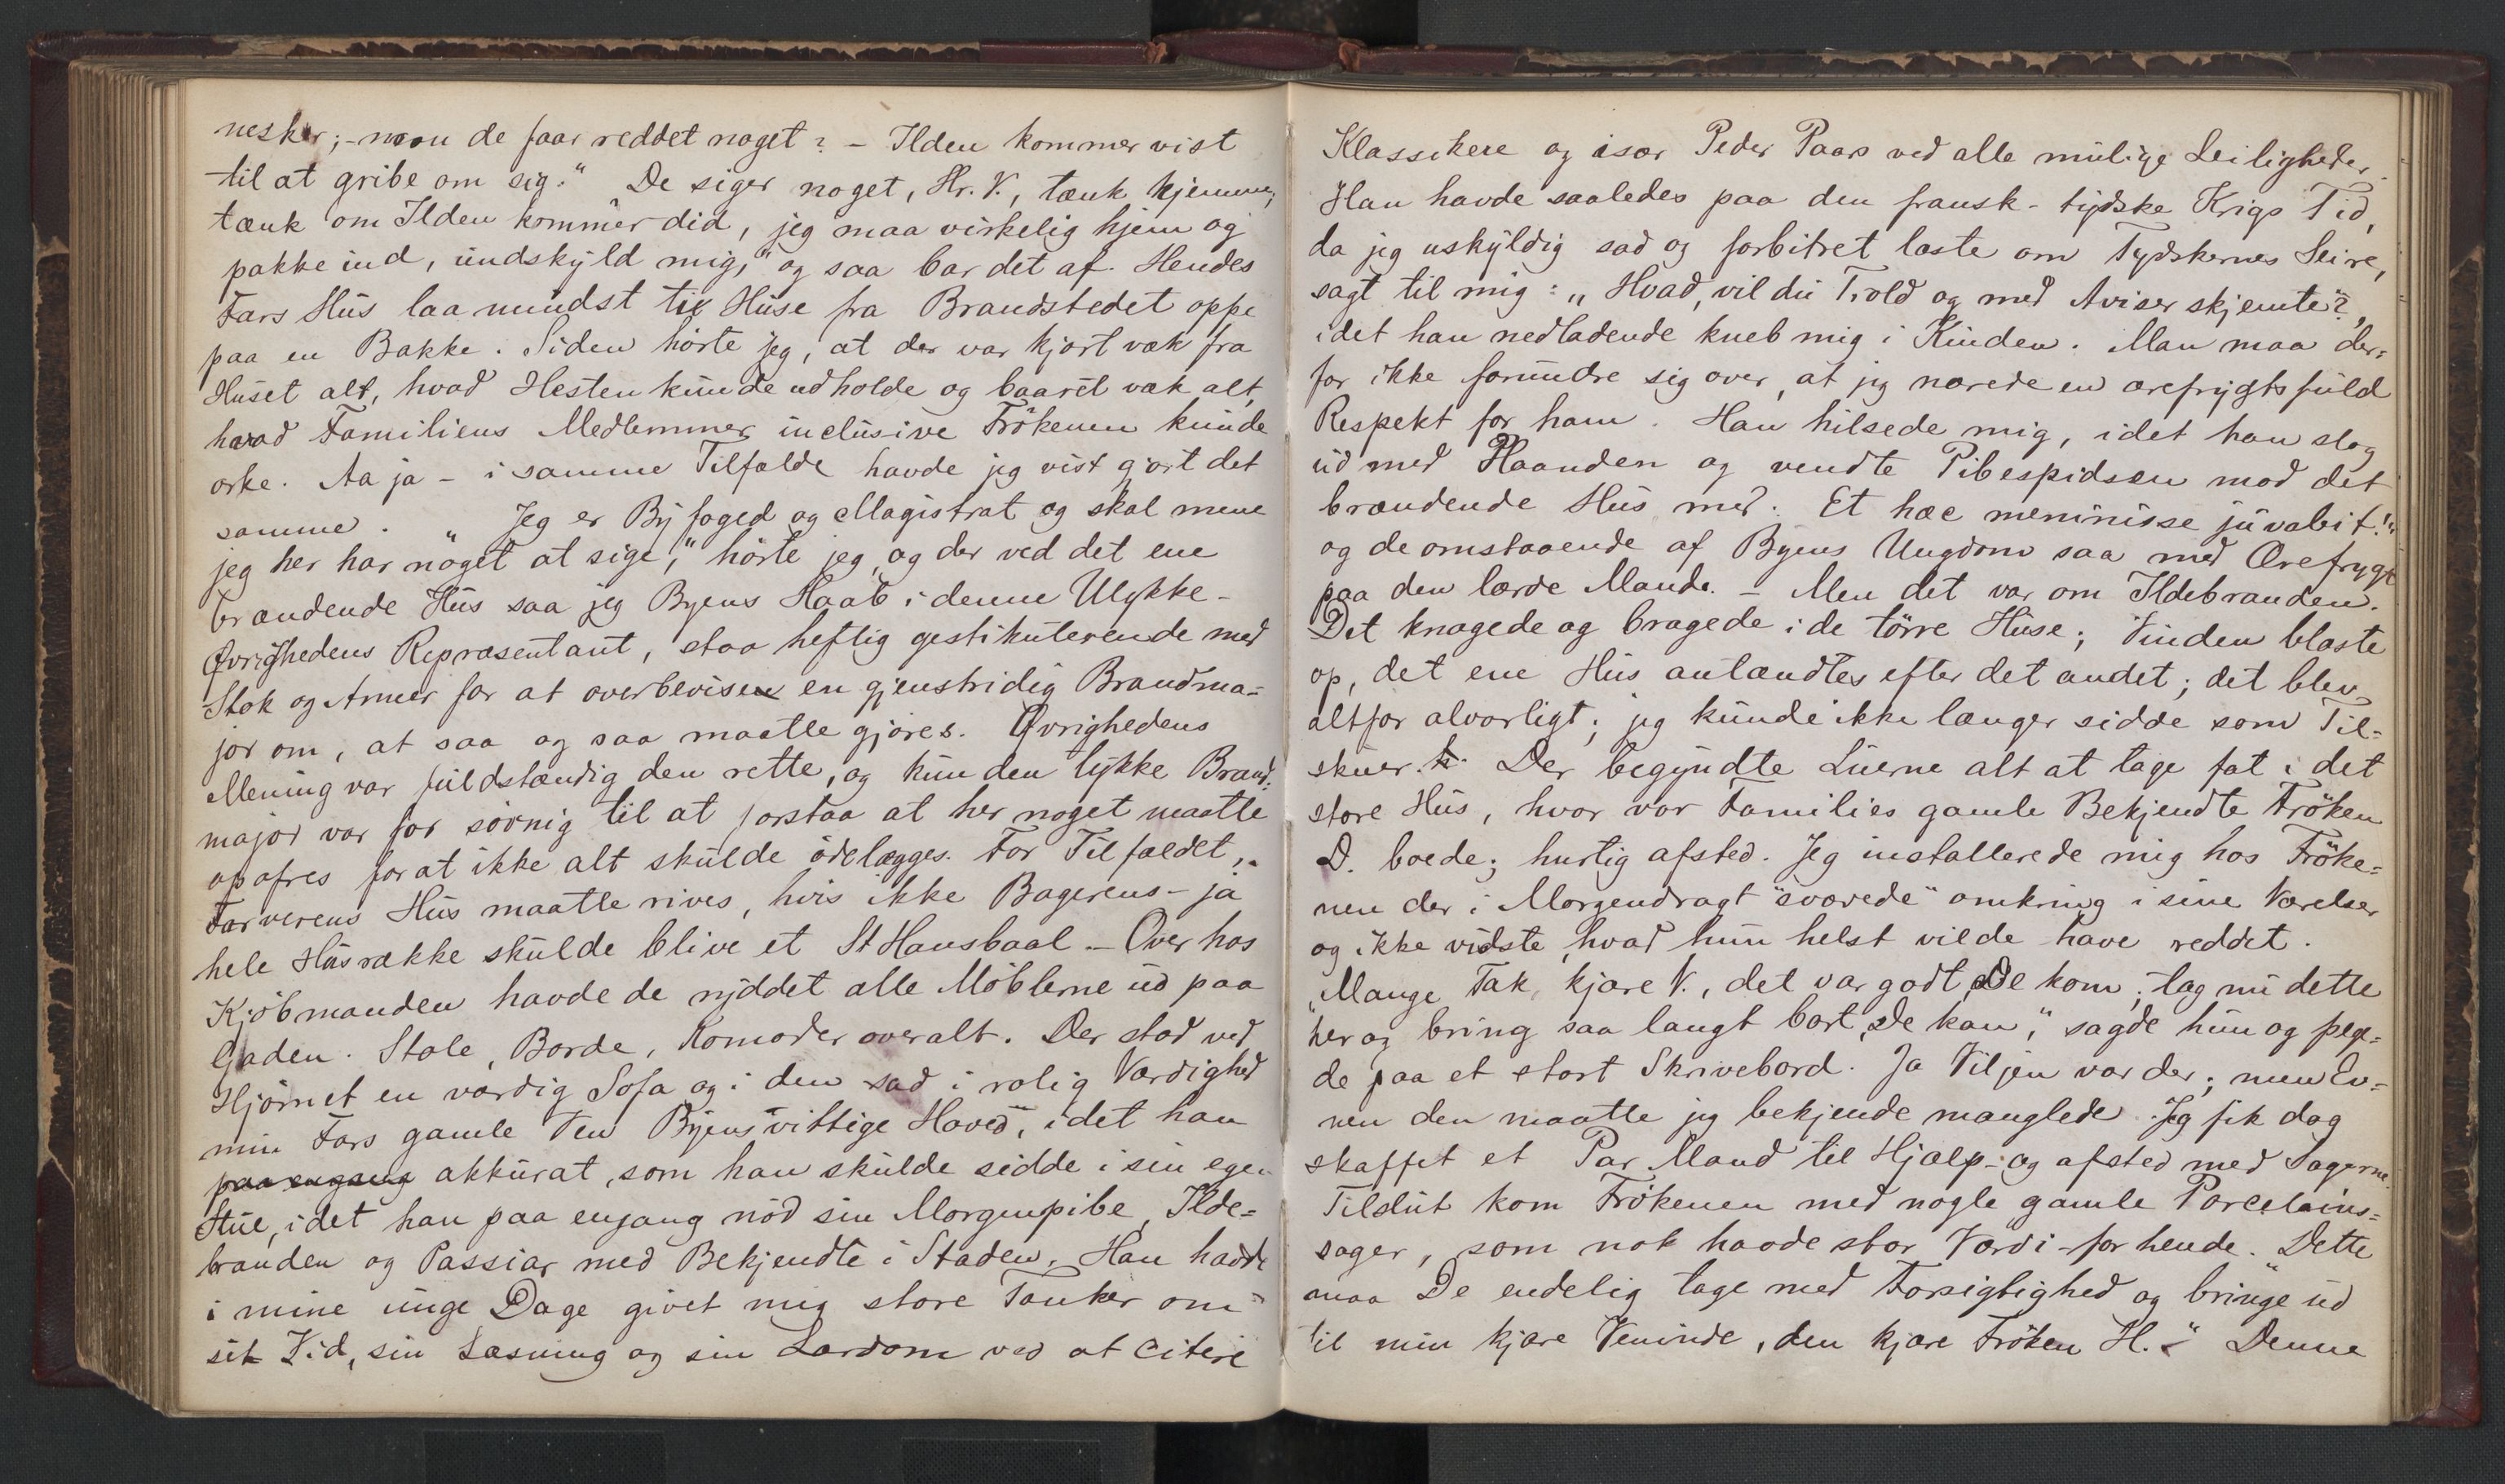 nesker; - mon de faar reddet noget? - Ilden kommer vist
til at gribe om sig." De siger noget, Hr. V., tænk hjemme,
tænk om Ilden kommer did, jeg maa virkelig hjem og
pakke ind, undskyld mig," og saa bar det af. Hendes
Fars Hus laa mindst ti Huse fra Brandstedet oppe
paa en Bakke. Siden hörte jeg, at der var kjört væk fra
Huset alt, hvad Hesten kunde udholde og baaret væk alt,
hvad Familiens Medlemmer inclusive Frökenen kunde
orke. Aa ja - i samme Tilfælde havde jeg vist gjort det
samme. "Jeg er Byfoged og Magistrat og skal mene
jeg her har noget at sige," hörte jeg, og der ved det ene
brændende Hus saa jeg Byens Haab i denne Ulykke -
Øvrighedens Repræsentant, staa heftig gestikulerende med
Stok og Armer for at overbevise en gjenstridig Brandma=
jor om, at saa og saa maatte gjöres. Øvrighedens
Mening var fuldstændig den rette, og kun den tykke Brand=
major var for sövnig til at forstaa at her noget maatte
opofres for at ikke alt skulde ödelægges. For Tilfældet,
Farverens Hus maatte rives, hvis ikke Bagerens - ja
hele Husrække skulde blive et St Hansbaal. - Over hos
Kjöbmanden havde de ryddet alle Möblerne ud paa
Gaden. Stole, Borde, Komoder overalt. Der stod ved
Hjörnet en værdig Sofa og i den sad i rolig Værdighed
min Fars gamle Ven "Byens vittige Hoved", idet han
paa engang akkurat, som han skulde sidde i sin egen
Stue, idet han paa engang nöd sin Morgenpibe, Ilde=
branden og Passiar med Bekjendte i Staden. Han havde
i mine unge Dage givet mig store Tanker om
sit Vid, sin Læsning og sin Lærdom ved at citere
Klassikere og især Peder Paars ved alle mulige Leiligheder.
Han havde saaledes paa den fransk-tydske Krigs Tid,
da jeg uskyldig sad og forbitret læste om Tydskernes Seire,
sagt til mig: "Hvad, vil du Trold og med Aviser skjemte"?,
idet han nedladende kneb mig i Kinden. Man maa der=
for ikke forundre sig over, at jeg nærede en ærefrygtsfuld
Respekt for ham. Han hilsede mig, idet han slog
ud med Haanden og vendte Pibespidsen mod det
brændende Hus med: Et hæc meminisse juvabit!"
og de omstaaende af Byens Ungdom saa med Ærefrygt
paa den lærde Mand. - Men det var om Ildebranden.
Det knagede og bragede i de törre Huse; Vinden blæste
op, det ene Hus antændtes efter det andet; det blev
altfor alvorligt; jeg kunde ikke længer sidde som Til=
skuer. Der begyndte Luerne alt at tage fat i det
store Hus, hvor vor Families gamle Bekjendte Fröken
D. boede; hurtig afsted. Jeg installerede mig hos Fröke=
nen der i Morgendragt "svævede" omkring i sine Værelser
og ikke vidste, hvad hun helst vilde have reddet.
"Mange Tak, kjære V., det var godt De kom; tag nu dette
her og bring saa langt bort, De kan," sagde hun og pege=
de paa et stort Skrivebord. Ja Viljen var der; men Ev=
nen den maatte jeg bekjende manglede. Jeg fik dog
skaffet et Par Mand til Hjælp - og afsted med Sagerne.
Tilslut kom Frökenen med nogle gamle Porcelains=
sager, som nok havde stor Værdi for hende. "Dette
maa De endelig tage med Forsigtighed og bringe ud
til min kjære Veninde, den kjære Fröken H." Denne